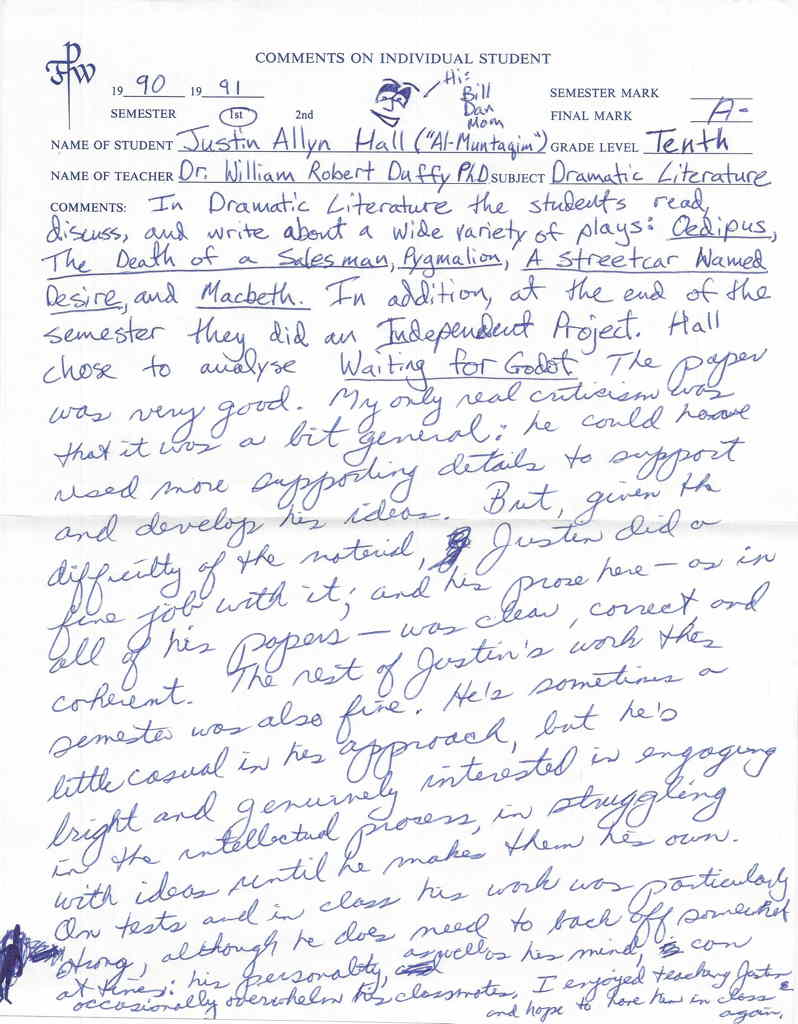 FPW
COMMENTS ON INDIVIDUAL STUDENT
Hi:
Bill
Dan
Mom
19 90 19 91
SEMESTER 1st 2nd
SEMESTER MARK
FINAL MARK A-
NAME OF STUDENT Justin Allyn Hall ("Al-Muntaqim") GRADE LEVEL Tenth
NAME OF TEACHER Dr. William Robert Duffy PhD SUBJECT Dramatic Literature
COMMENTS: In Dramatic Literature the students read,
discuss, and write about a wide variety of plays: Oedipus,
The Death of a Salesman, Pygmalion, A Streetcar Named
Desire, and Macbeth. In addition, at the end of the
semester they did an Independent Project. Hall
chose to analyse Waiting for Godot. The paper
was very good. My only real criticism was
that it was a bit general: he could have
used more supporting details to support
and develop his ideas. But, given the
difficulty of the material, Justin did a
fine job with it; and his prose here — as in
all of his papers — was clear, correct, and
coherent. The rest of Justin's work this
semester was also fine. He's sometimes a
little casual in his approach, but he's
bright and genuinely interested in engaging
in the intellectual process, in struggling
with ideas until he makes them his own.
On tests and in class his work was particularly
strong, although he does need to back off somewhat
at times: his personality, as well as his mind, can
occasionally overwhelm his classmates. I enjoyed teaching Justin &
and hope to have him in class
again.